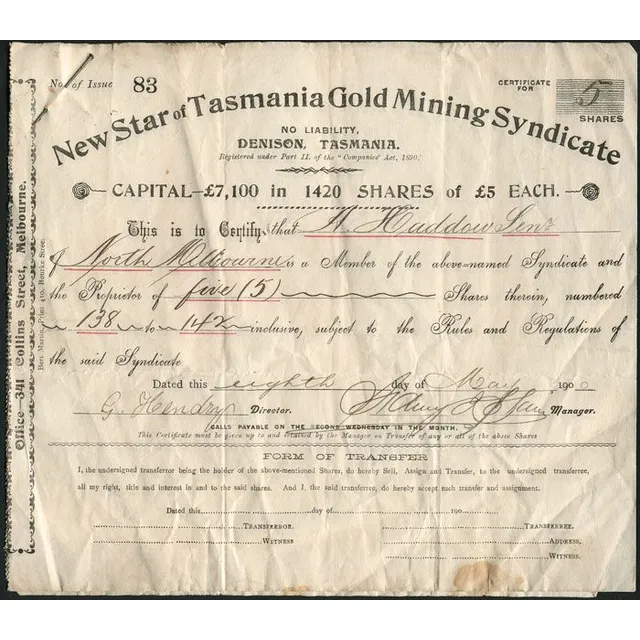 No. of Issue 83
CERTIFICATE FOR 5 SHARES
New Star of Tasmania Gold Mining Syndicate
NO LIABILITY,
DENISON, TASMANIA.
Registered under Part II. of the "Companies' Act, 1890."
CAPITAL—£7,100 in 1420 SHARES of £5 EACH.
This is to Certify that A. Haddow Senr
of North Melbourne is a Member of the above-named Syndicate and
the Proprietor of five (5) Shares therein, numbered
138 to 142 inclusive, subject to the Rules and Regulations of
the said Syndicate
Dated this eighth day of May 1900
G. Hendry Director. Manager.
CALLS PAYABLE ON THE SECOND WEDNESDAY IN THE MONTH.
This Certificate must be given up to and by the Manager on Transfer of any or all of the above Shares
FORM OF TRANSFER
I, the undersigned transferror being the holder of the above-mentioned Shares, do hereby Sell, Assign and Transfer, to the undersigned transferree,
all my right, title and interest in and to the said shares. And I, the said transferree, do hereby accept such transfer and assignment.
Dated this day of 190
TRANSFERROR. TRANSFERREE.
WITNESS ADDRESS,
WITNESS.
Office—341 Collins Street, Melbourne.